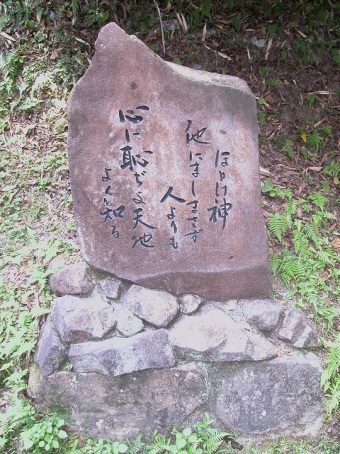 ほとけ神
他にましまさず
人よりも
心に恥ぢよ天地
よく知る